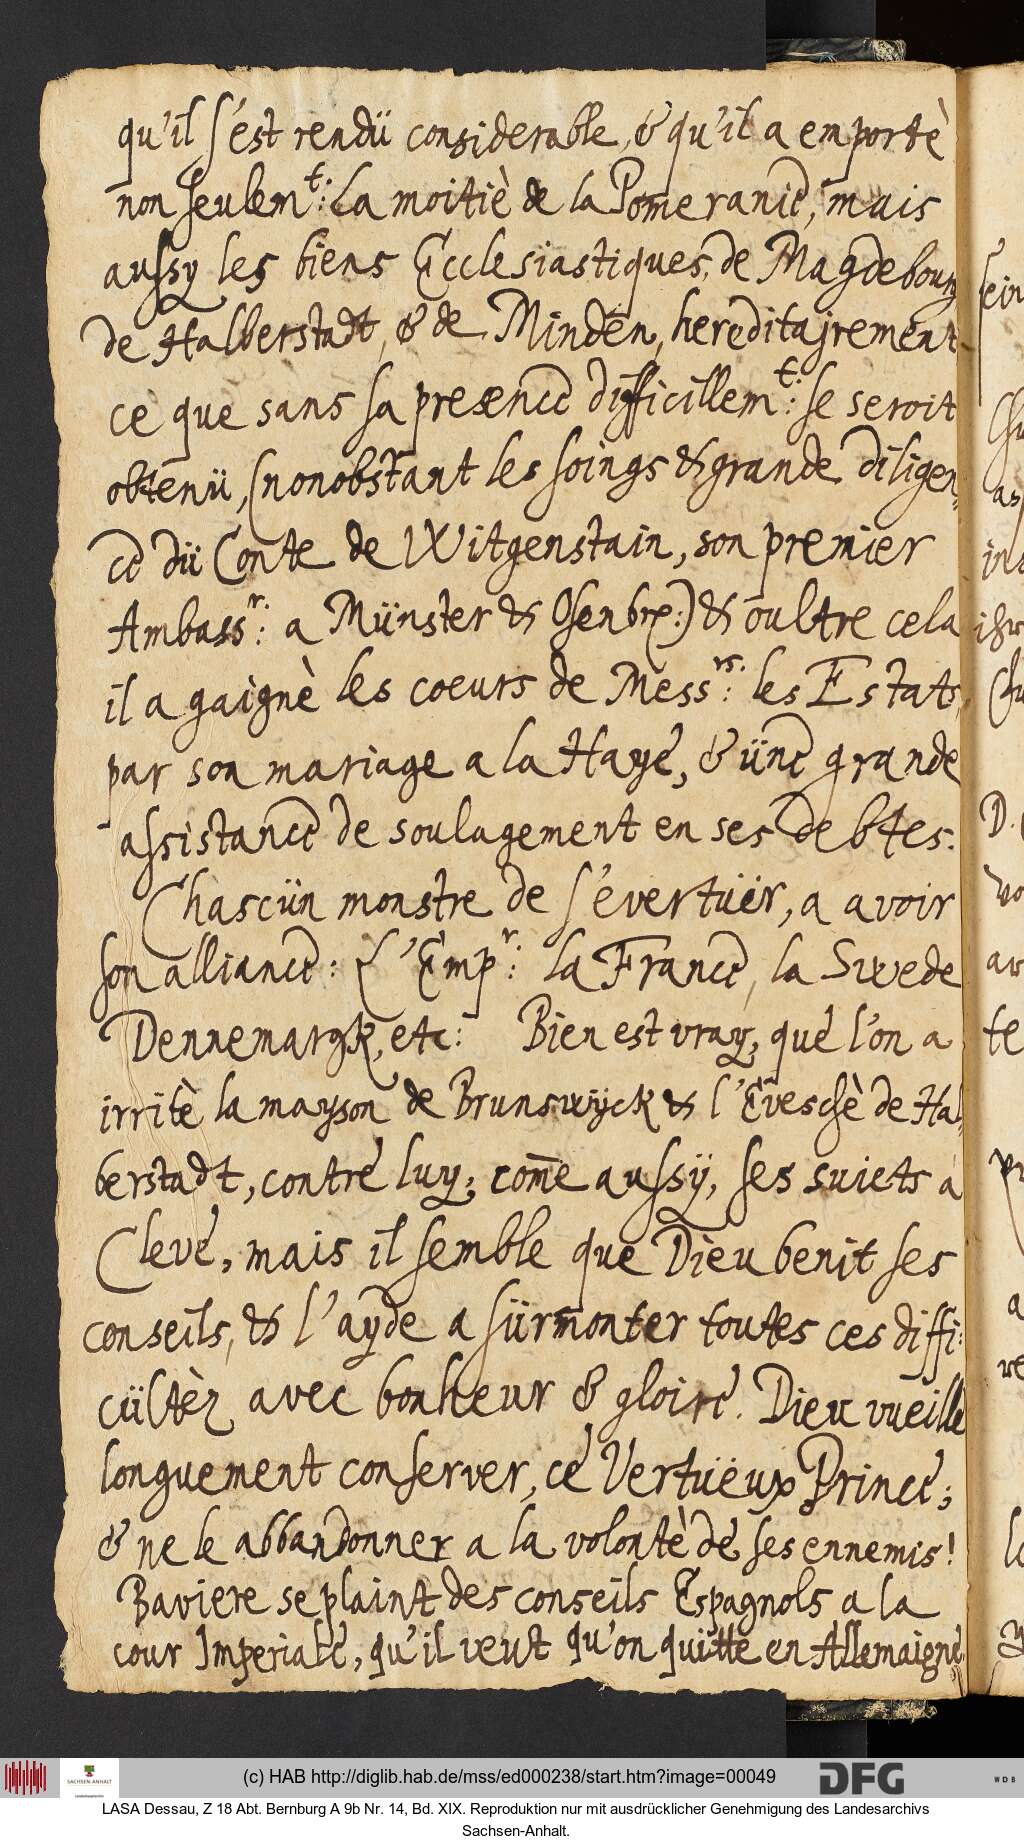 qu'il s'est rendü considerable, & qu'il a emportè
non seulem^t: La moitiè de la Pomeranie, mais
aussy les biens Ecclesiastiques, de Magdebourg
de Halberstadt, & de Minden, hereditajrement
ce que sans sa presence difficillem^t: se seroit
obtenü, (nonobstant les soings & grande diligen¬
ce dü Conte de Witgenstain, son premier
Ambass^r: a Münster & Osenbre:) & oultre cela
il a gaignè les coeurs de Mess^rs: les Estats,
par son mariage a la Haye, & üne grande
assistance de soulagement en ses debtes.
Chascün monstre de s'evertüer, a avoir
son alliance: L'Emp^r: la France, la Swede
Dennemargk, etc: Bien est vray, que l'on a
irritè la mayson de Brunswijck & l'Eveschè de Hal¬
berstadt, contre luy; com̄e aussÿ, ses suiets a
Cleve, mais il semble que Dieu benit ses
conseils, & l'ayde a sürmonter toutes ces diffi¬
cültèz avec bonheur & gloire. Dieu vueille
longuement conserver, ce Vertüeux Prince;
& ne le abbandonner a la volontè de ses ennemis!
Baviere se plaint des conseils Espagnols a la
cour Imperiale, qu'il veut qu'on quitte en Allemaigne
(c) HAB http://diglib.hab.de/mss/ed000238/start.htm?image=00049
SACHSEN-ANHALT
DFG
WDB
LASA Dessau, Z 18 Abt. Bernburg A 9b Nr. 14, Bd. XIX. Reproduktion nur mit ausdrücklicher Genehmigung des Landesarchivs
Sachsen-Anhalt.